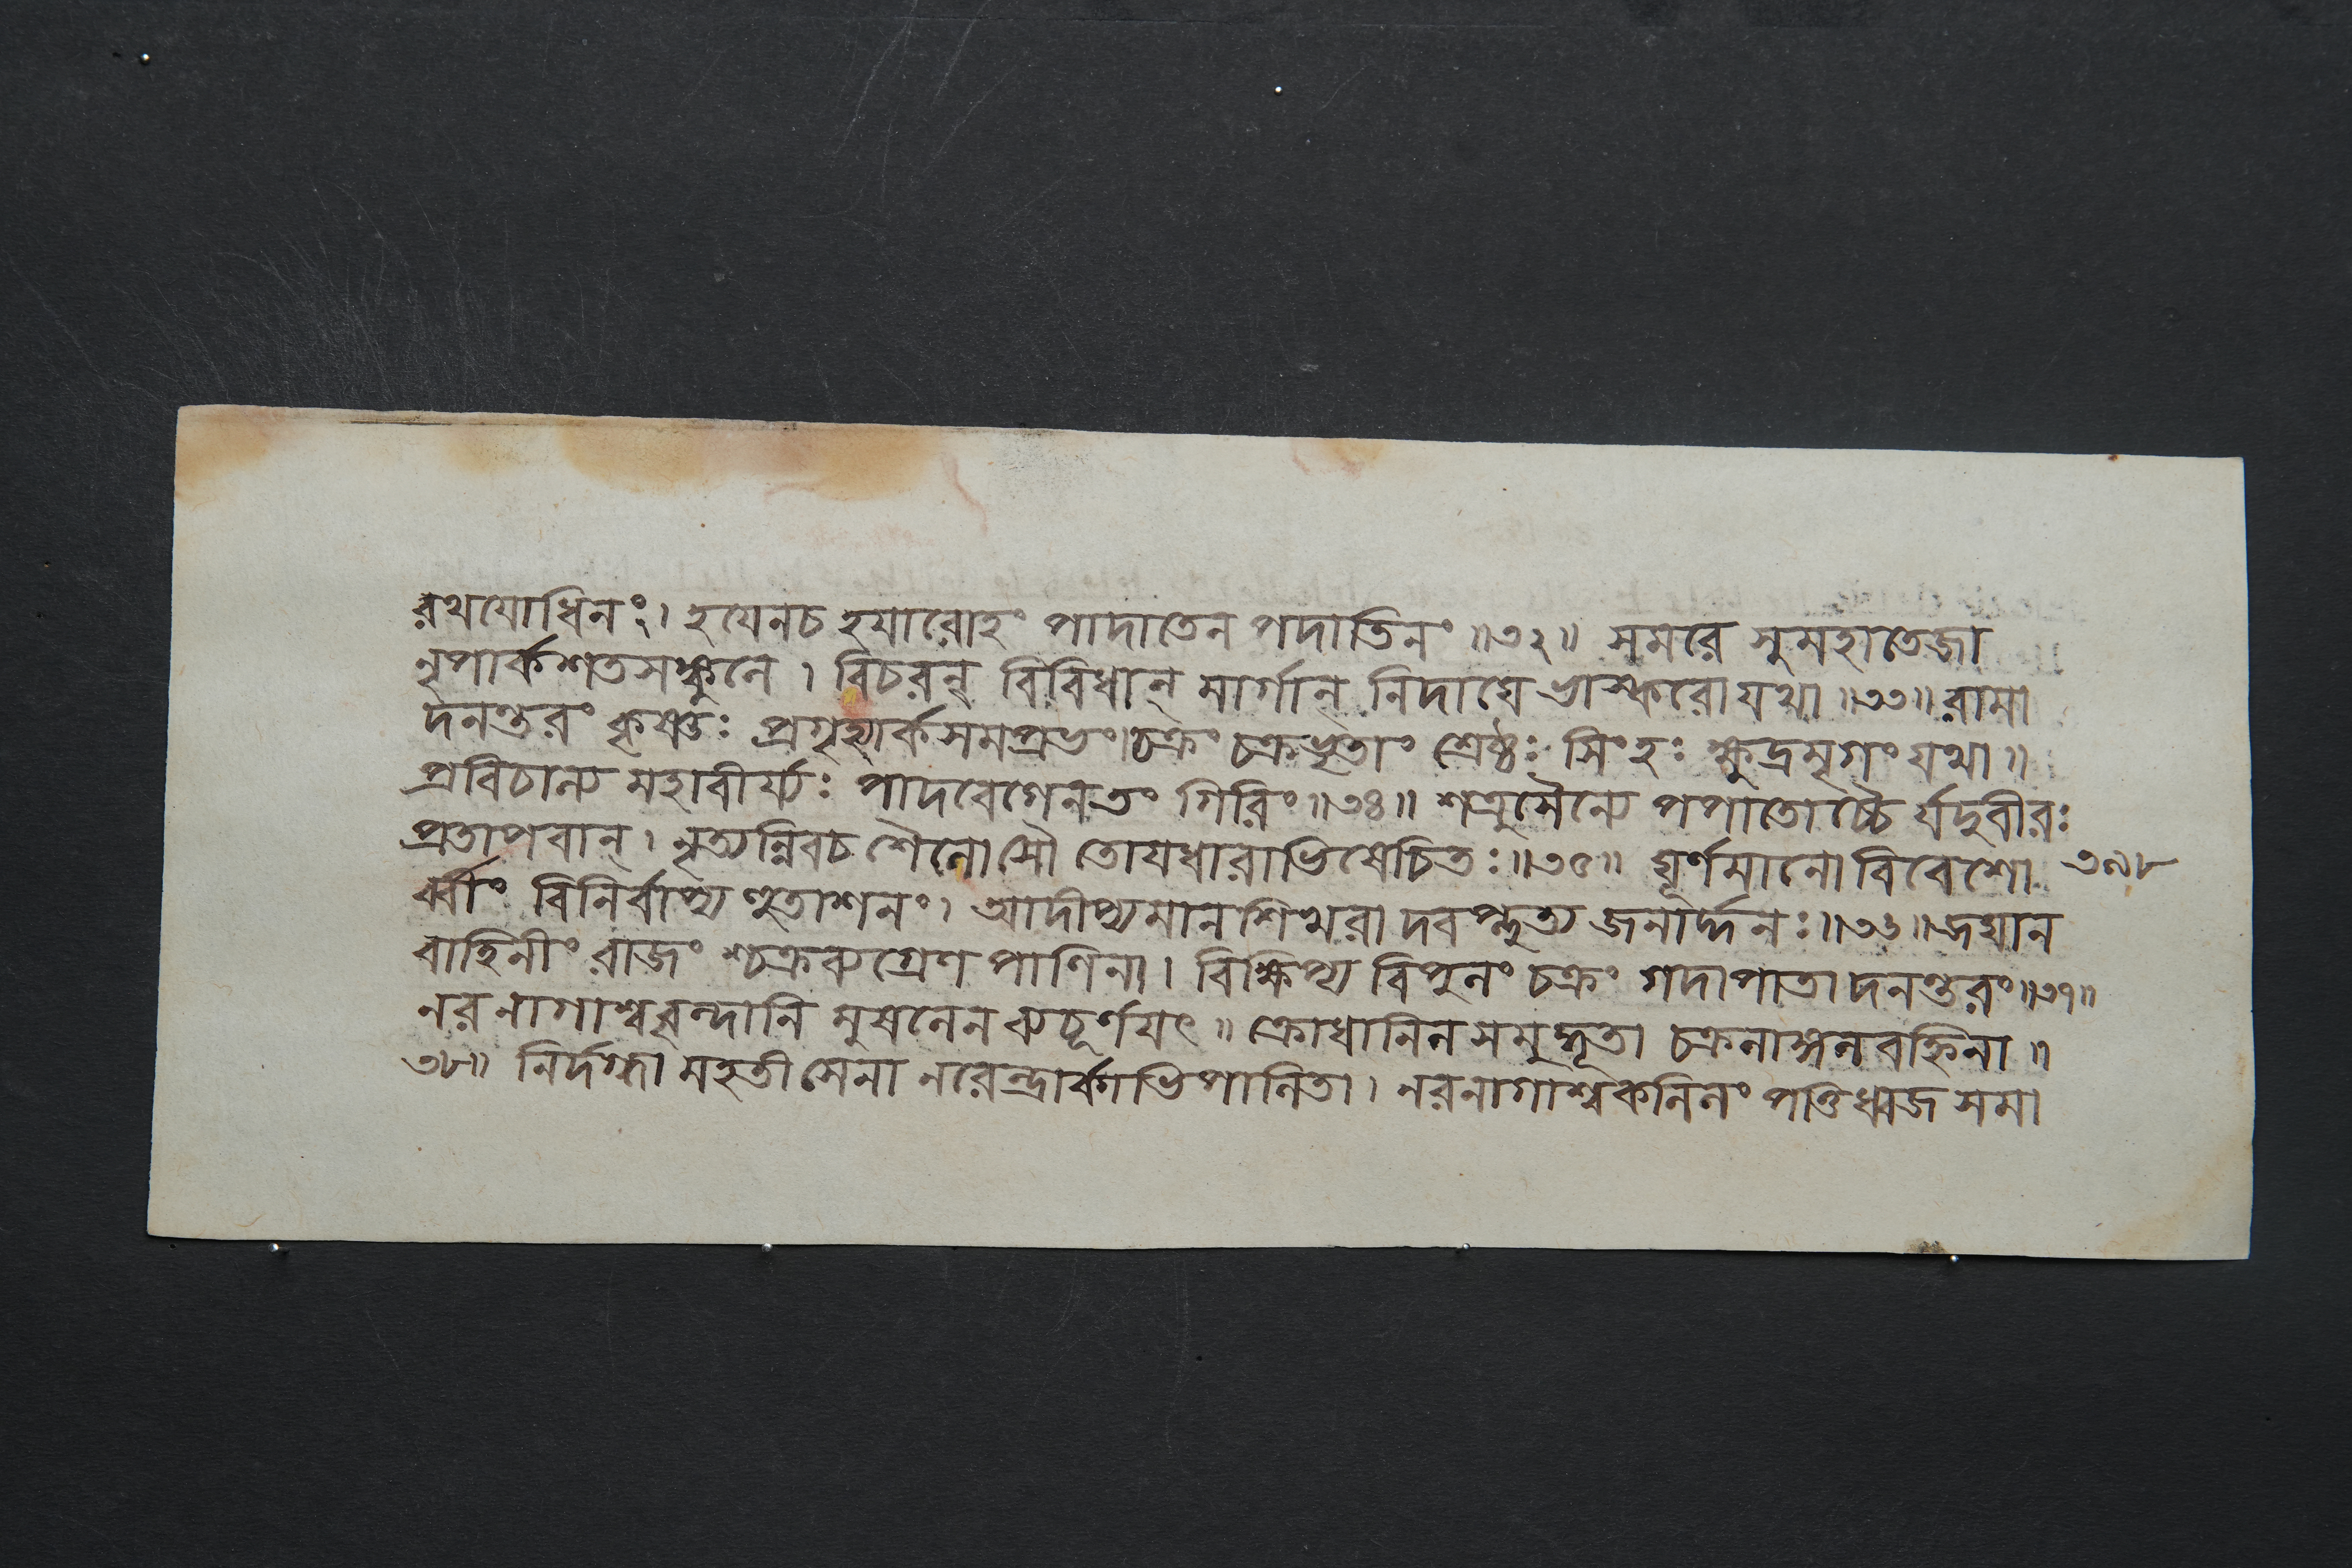 রথযোধিনং। হযেনচ হযারোহং পাদাতেন পদাতিনং॥৩২॥ সমরে সুমহাতেজা
নৃপার্কশতসঙ্কুলে। বিচরন্ বিবিধান্ মার্গান্ নিদাঘে ভাস্করো যথা॥৩৩॥ রামা
দনন্তরং কৃষ্ণঃ প্রগৃহ্যার্কসমপ্রভং। চক্রং চক্রভৃতাং শ্রেষ্ঠঃ সিংহঃ ক্ষুদ্রমৃগং যথা॥
প্রবিচাল্য মহাবীর্য্যঃ পাদবেগেন তং গিরিং॥৩৪॥ শত্রুসৈন্যে পপাতোচ্চৈ র্যদুবীরঃ
প্রতাপবান্। নৃত্যন্নিবচ শৈলো সৌ তোযধারাভিষেচিতঃ॥৩৫॥ ঘূর্ণমানো বিবেশো
র্ব্বীং বিনির্বাপ্য হুতাশনং। আদীপ্যমানশিখরা দবপ্লুত্য জনার্দ্দনঃ॥৩৬॥ জঘান
বাহিনীং রাজং শ্চক্রব্যগ্রেণ পাণিনা। বিক্ষিপ্য বিপুলং চক্রং গদাপাতা দনন্তরং॥৩৭॥
নরনাগাশ্ববৃন্দানি মুষলেন ব্যচূর্ণযৎ॥ ক্রোধানিলসমুদ্ভূতা চক্রলাঙ্গলবহ্নিনা॥
৩৮॥ নির্দগ্ধা মহতী সেনা নরেন্দ্রার্কাভিপালিতা। নরনাগাশ্বকলিলং পত্তিধ্বজ সমা
৩৯৮